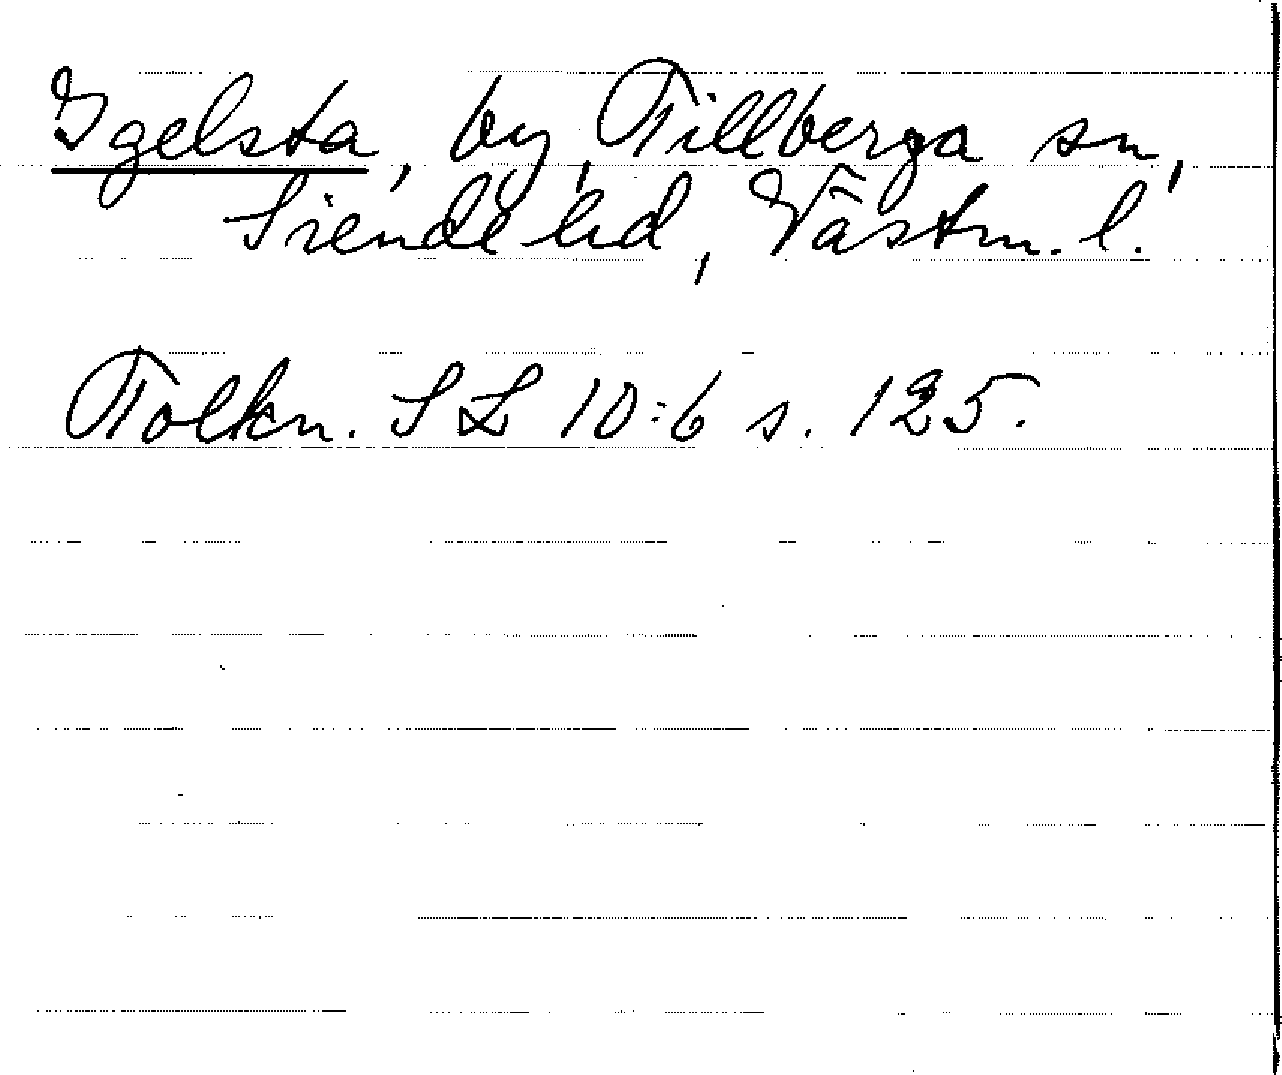 Igelsta, by, Tillberga sn,
Siende hd, Västm. l.
Tolkn. SL 10:6 s. 125.